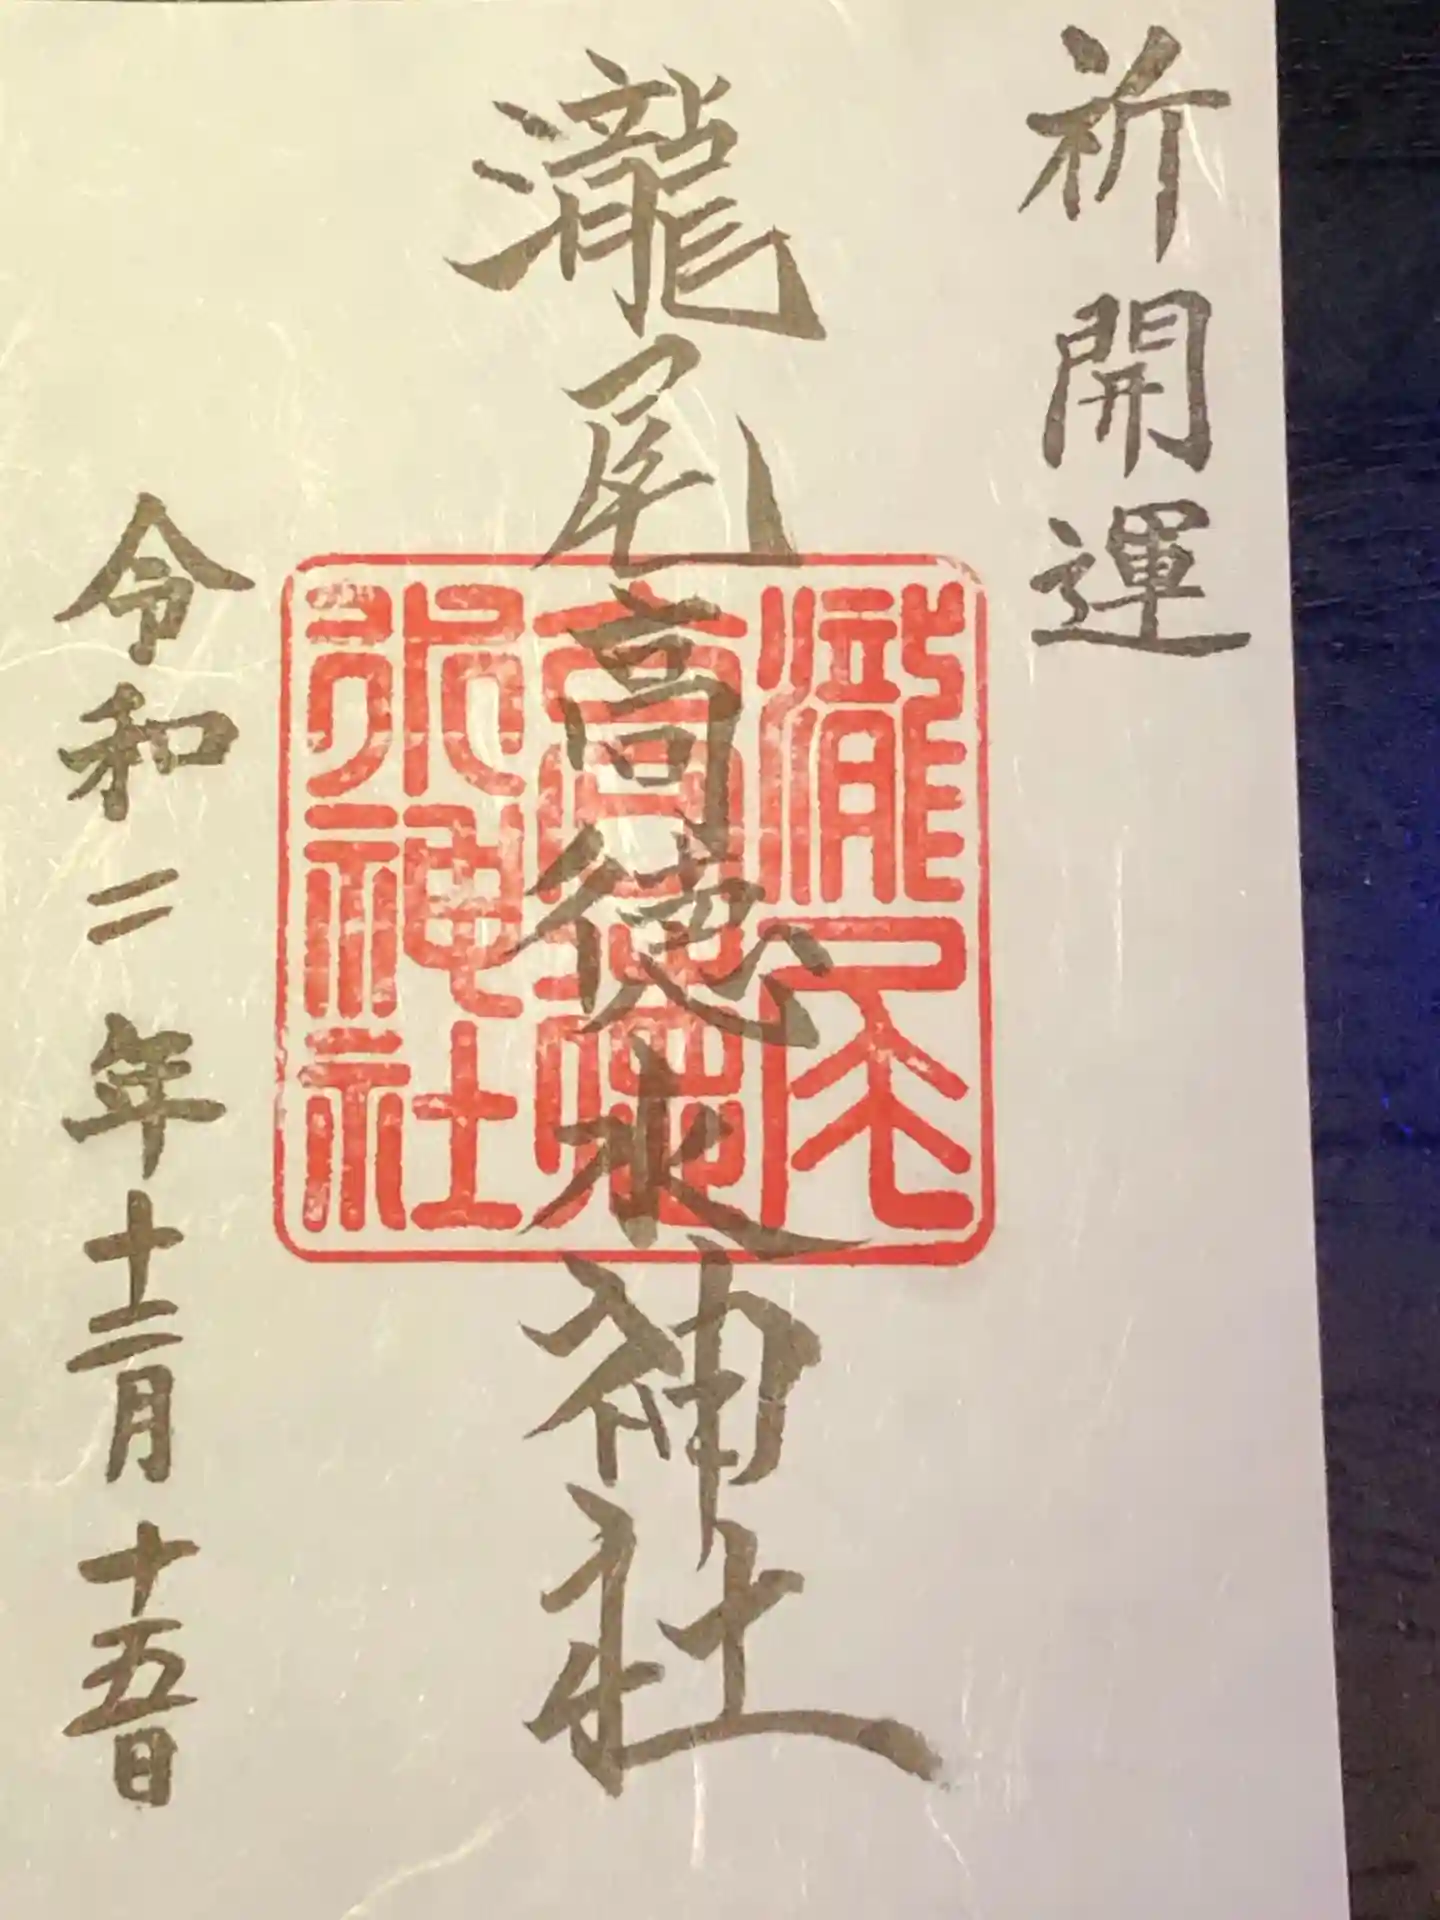 祈開運
瀧尾高徳水神社
瀧尾
高徳
水神社
令和二年十二月十五日